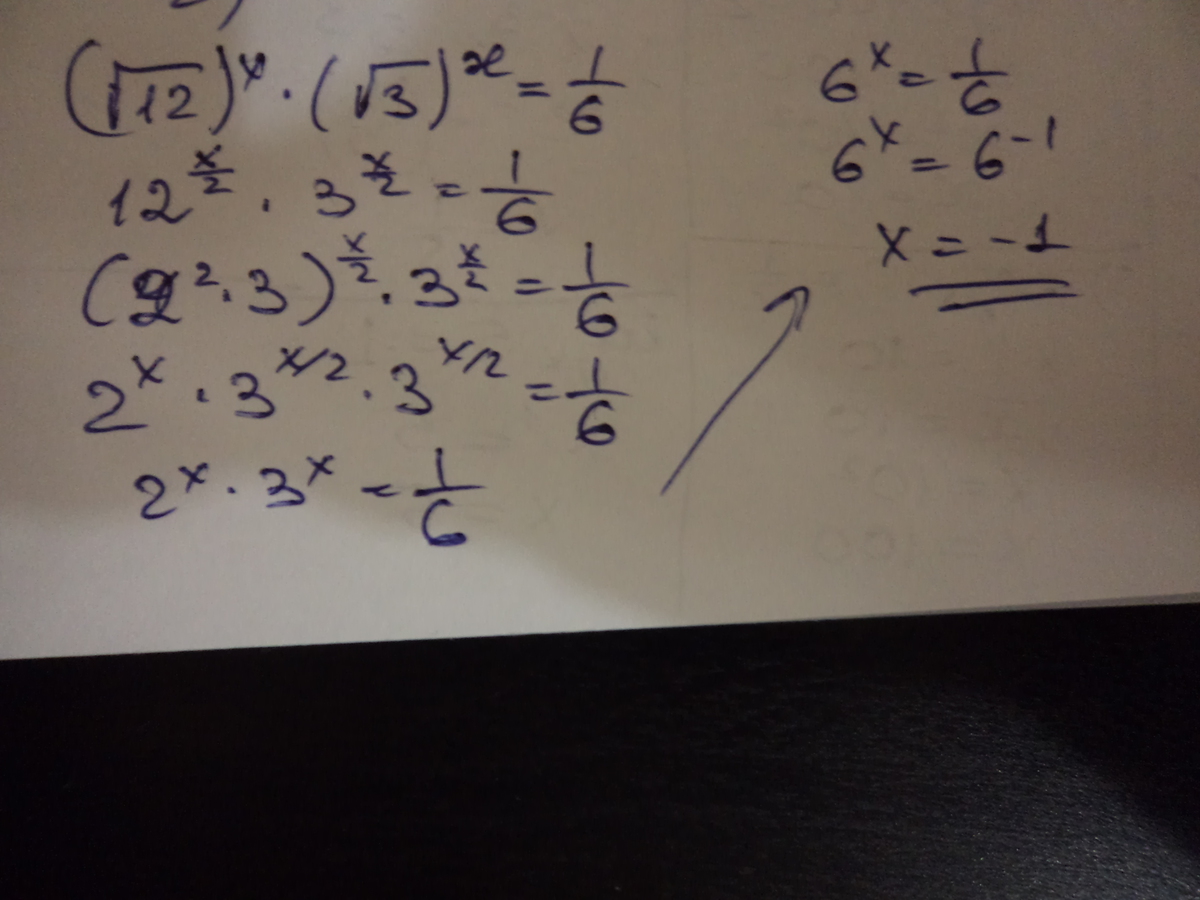 (√12)^x · (√3)^x = 1/6
12^(x/2) · 3^(x/2) = 1/6
(2² · 3)^(x/2) · 3^(x/2) = 1/6
2^x · 3^(x/2) · 3^(x/2) = 1/6
2^x · 3^x = 1/6
6^x = 1/6
6^x = 6^-1
x = -1